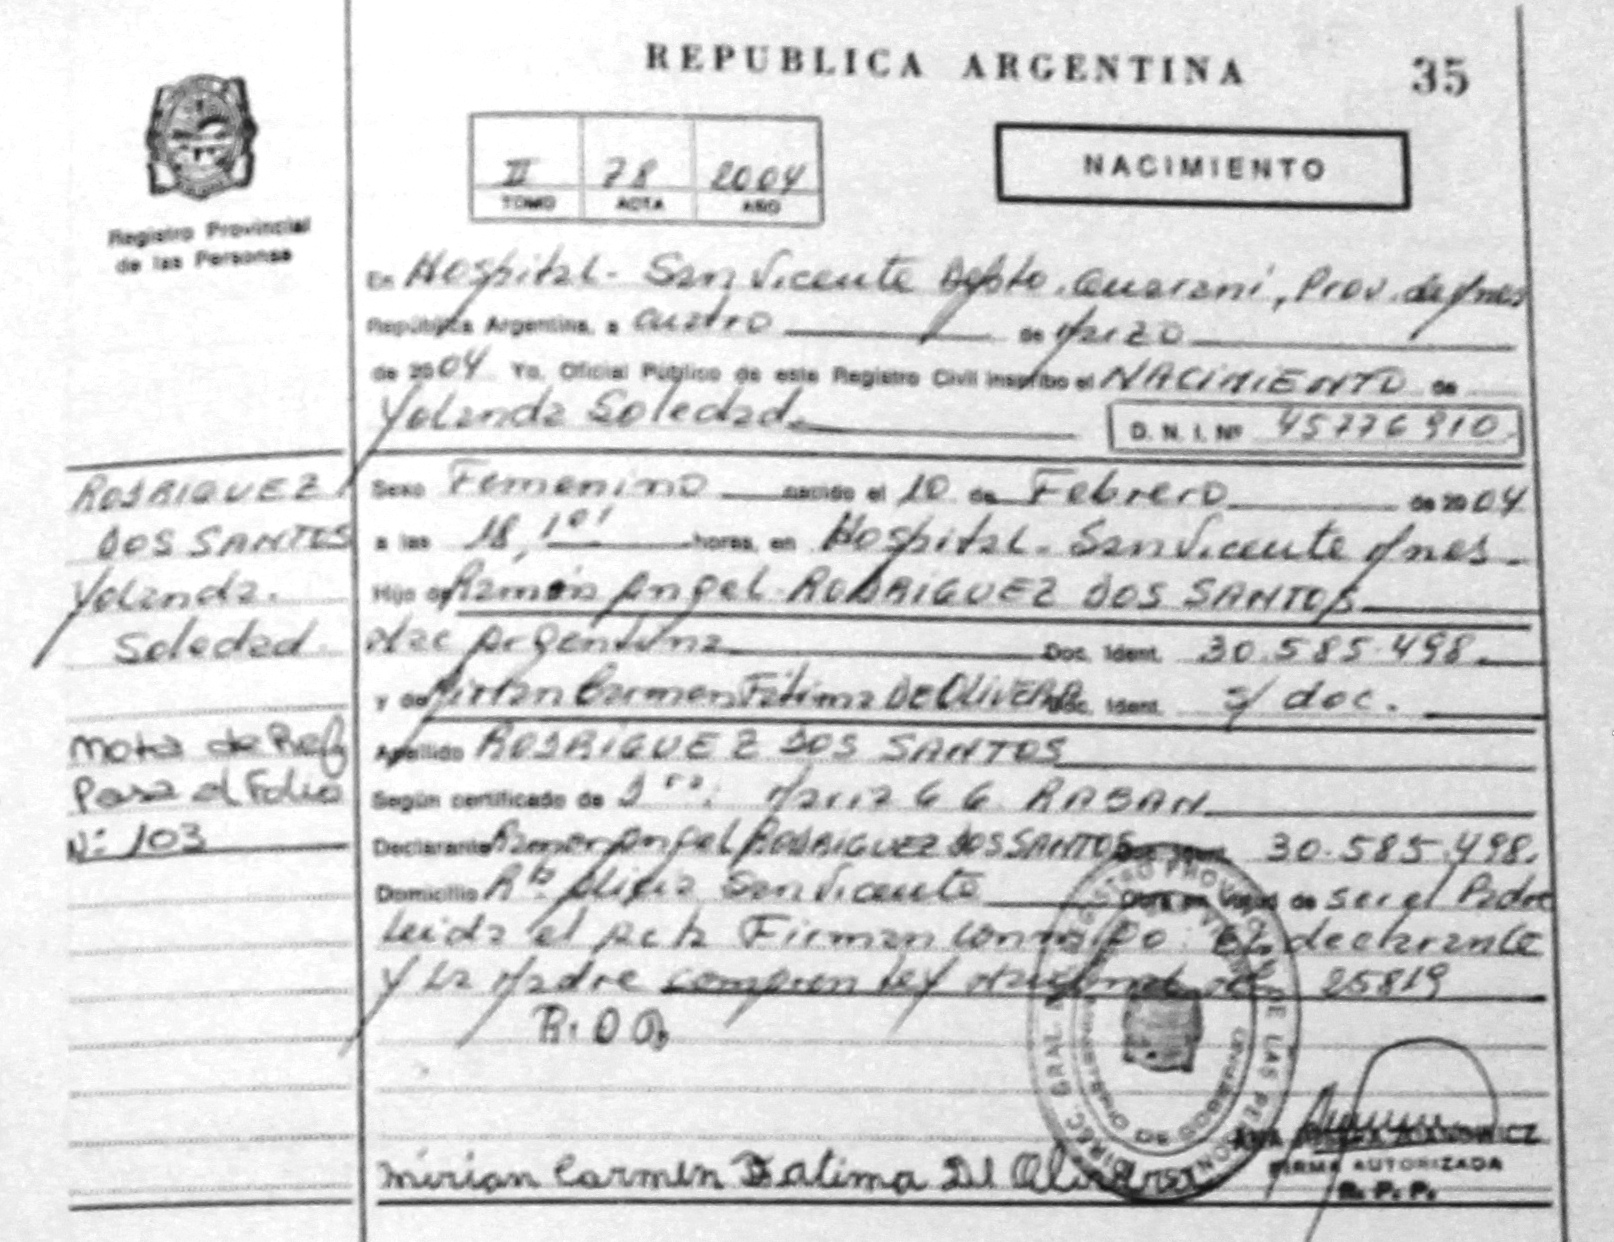 REPUBLICA ARGENTINA 35
II 78 2004
TOMO ACTA AÑO
NACIMIENTO
Registro Provincial
de las Personas
En Hospital - San Vicente Depto. Guarani, Prov. de Mnes
República Argentina, a cuatro de Marzo
de 2004 Yo, Oficial Público de este Registro Civil inscribo el NACIMIENTO de
Yolanda Soledad D. N. I. Nº 45776910
RODRIGUEZ
DOS SANTOS
Yolanda
Soledad
Sexo Femenino nacido el 10 de Febrero de 2004
a las 18,10 horas, en Hospital - San Vicente Mnes
Hijo de Ramón Angel RODRIGUEZ DOS SANTOS
Nac Argentina Doc. Ident. 30.585.498
y de Mirian Carmen Fátima DE OLIVERA Doc. Ident. s/ doc.
Nota de Ref
Pasa al Folio
Nº 103
Apellido RODRIGUEZ DOS SANTOS
Según certificado de Dra: Maria G G
Declarante Ramon Angel RODRIGUEZ DOS SANTOS Doc. Ident. 30.585.498.
Domicilio Bº San Vicente Obra en virtud de ser el Padre
Leida el Acta Firman conmigo El declarante
y La Madre Ley Nacional 25819
R. O D
Mirian Carmen Fatima De Olivera
DIREC. GRAL. REGISTRO PROVINCIAL DE LAS PERSONAS
FIRMA AUTORIZADA
R. P. P.